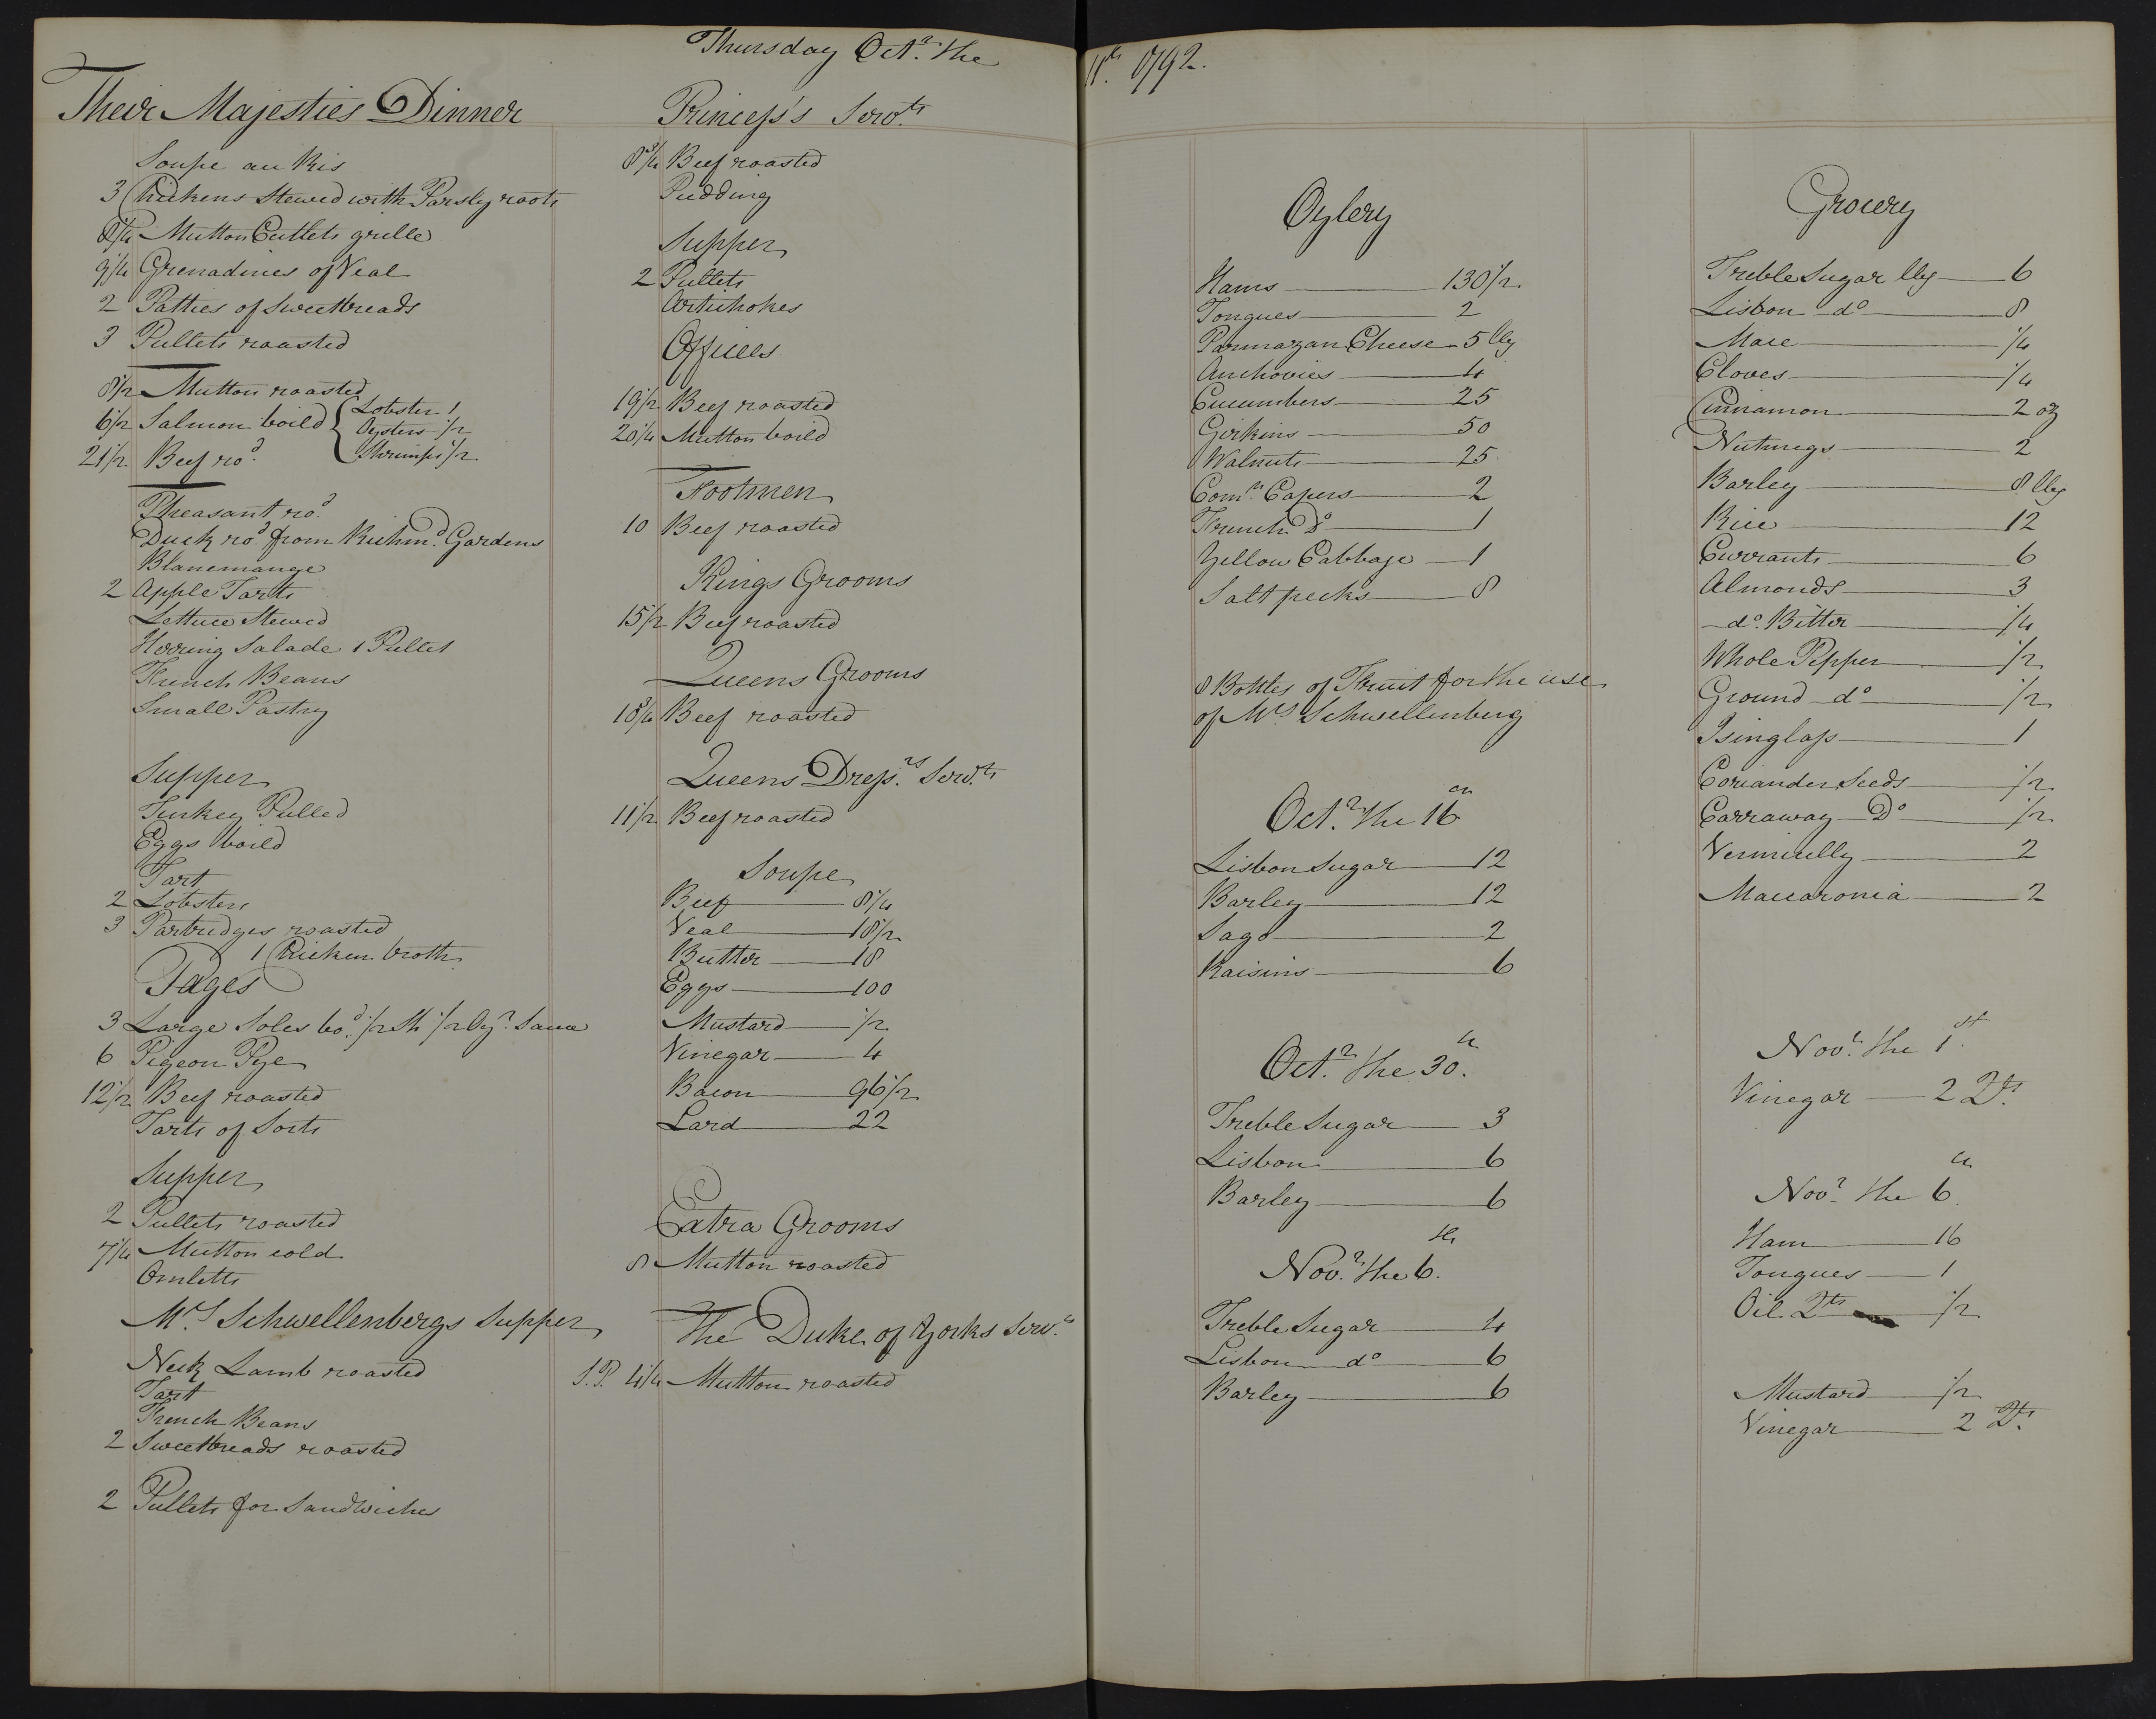 Thursday Octr. the 11th. 1792.
Their Majesties Dinner
Soupe au Ris
3 Chickens Stewed with Parsly roots
8 1/4 Mutton Cutlets grille
9 1/4 Grenadines of Veal
2 Patties of Sweetbreads
3 Pullets roasted
8 1/2 Mutton roasted
6 1/2 Salmon boild { Lobster 1
Oysters 1/2
Shrimps 1/2
21 1/2 Beef rod.
Pheasant rod.
Duck rod. from Richmd. Gardens
Blancmange
2 Apple Tarts
Lettuce Stewed
Herring Salade 1 Pullet
French Beans
Small Pastry
Supper
Turkey Pulled
Eggs boild
Tart
2 Lobsters
3 Partridges roasted
1 Chicken broth
Pages
3 Large Soles bod. 1/2 Sh 1/2 Oyr. Sauce
6 Pigeon Pye
12 1/2 Beef roasted
Tarts of Sorts
Supper
2 Pullets roasted
7 1/4 Mutton cold
Omletts
Mrs Schwellenbergs Supper
Neck Lamb roasted
Tart
French Beans
2 Sweetbreads roasted
2 Pullets for Sandwiches
Princess's Servts.
8 3/4 Beef roasted
Pudding
Supper
2 Pullets
Artichokes
Offices
19 1/2 Beef roasted
20 1/4 Mutton boild
Footmen
10 Beef roasted
Kings Grooms
15 1/2 Beef roasted
Queens Grooms
18 3/4 Beef roasted
Queens Dressrs. Servts.
11 1/2 Beef roasted
Soupe
Beef 8 1/4
Veal 18 1/2
Butter 18
Eggs 100
Mustard 1/2
Vinegar 4
Bacon 96 1/2
Lard 22
Extra Grooms
8 Mutton roasted
The Duke of Yorks Servts.
S.P. 4 1/4 Mutton roasted
Oylery
Hams 130 1/2
Tongues 2
Parmazan Cheese 5 lbs
Anchovies 4
Cucumbers 25
Girkins 50
Walnuts 25
Comn. Capers 2
French Do 1
Yellow Cabbage 1
Salt pecks 8
8 Bottles of Fruit for the use
of Mrs Schwellenberg
Octr. the 16th
Lisbon Sugar 12
Barley 12
Sago 2
Raisins 6
Octr. the 30th.
Treble Sugar 3
Lisbon 6
Barley 6
Novr. the 6th.
Treble Sugar 4
Lisbon do 6
Barley 6
Grocery
Treble Sugar lbs 6
Lisbon do 8
Mace 1/4
Cloves 1/4
Cinnamon 2 oz
Nutmegs 2
Barley 8 lbs
Rice 12
Currants 6
Almonds 3
do. Bitter 1/4
Whole Pepper 1/2
Ground do 1/2
Isinglass 1
Coriander Seeds 1/2
Carraway Do 1/2
Vermicelly 2
Maccaronia 2
Novr. the 1st.
Vinegar 2 Qts.
Novr. the 6th
Ham 16
Tongues 1
Oil Qts 1/2
Mustard 1/2
Vinegar 2 Qts.